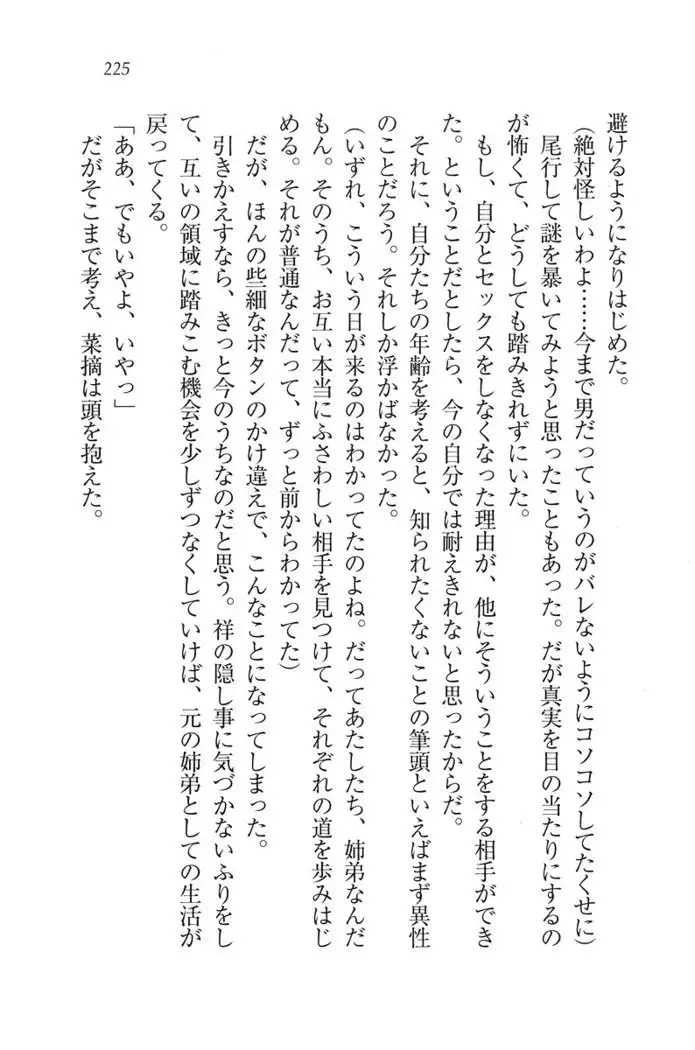 225
避けるようになりはじめた。
(絶対怪しいわよ……今まで男だっていうのがバレないようにコソコソしてたくせに)
尾行して謎を暴いてみようと思ったこともあった。だが真実を目の当たりにするの
が怖くて、どうしても踏みきれずにいた。
もし、自分とセックスをしなくなった理由が、他にそういうことをする相手ができ
た。ということだとしたら、今の自分では耐えきれないと思ったからだ。
それに、自分たちの年齢を考えると、知られたくないことの筆頭といえばまず異性
のことだろう。それしか浮かばなかった。
(いずれ、こういう日が来るのはわかってたのよね。だってあたしたち、姉弟なんだ
もん。そのうち、お互い本当にふさわしい相手を見つけて、それぞれの道を歩みはじ
める。それが普通なんだって、ずっと前からわかってた)
だが、ほんの些細なボタンのかけ違えで、こんなことになってしまった。
引きかえすなら、きっと今のうちなのだと思う。祥の隠し事に気づかないふりをし
て、互いの領域に踏みこむ機会を少しずつなくしていけば、元の姉弟としての生活が
戻ってくる。
「ああ、でもいやよ、いやっ」
だがそこまで考え、菜摘は頭を抱えた。